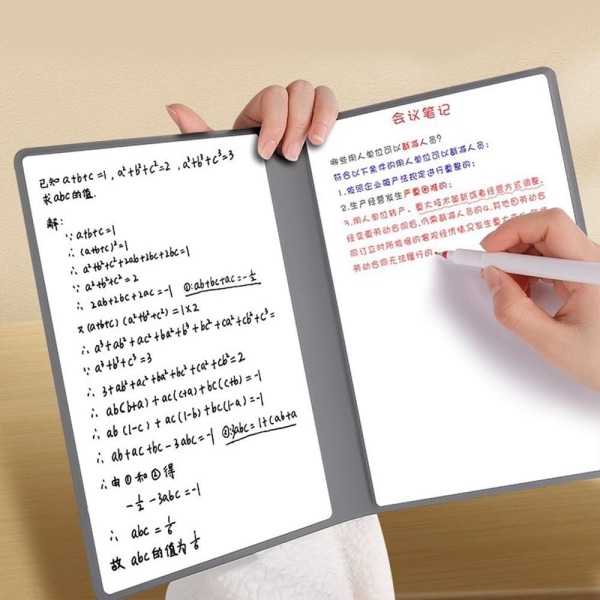 已知 a+b+c=1, a²+b²+c²=2, a³+b³+c³=3
求abc的值.
解:
∵ a+b+c=1
∴ (a+b+c)²=1
∴ a²+b²+c²+2ab+2bc+2ac=1
∵ a²+b²+c²=2
∴ 2ab+2bc+2ac=-1 ①:ab+bc+ac=-1/2
又(a+b+c)(a²+b²+c²)=1×2
∴ a³+ab²+ac²+ba²+b³+bc²+ca²+cb²+c³=
∵ a³+b³+c³=3
∴ 3+ab²+ac²+ba²+bc²+ca²+cb²=2
∴ ab(b+a)+ac(c+a)+bc(c+b)=-1
∴ ab(1-c)+ac(1-b)+bc(1-a)=-1
∴ ab+ac+bc-3abc=-1 ②:3abc=1+(ab+a
∴ 由①和②得
-1/2-3abc=-1
∴ abc=1/6
故 abc的值为1/6
会议笔记
哪些用人单位可以裁减人员?
符合以下条件的用人单位可以裁减人员:
1.依照企业破产法规定进行重整的;
2.生产经营发生严重困难的;
3.用人单位转产、重大技术革新或者经营方式调整,
经变更劳动合同后,仍需裁减人员的4.其他因劳动合
同订立时所依据的客观经济情况发生重大变化,
劳动合同无法履行的